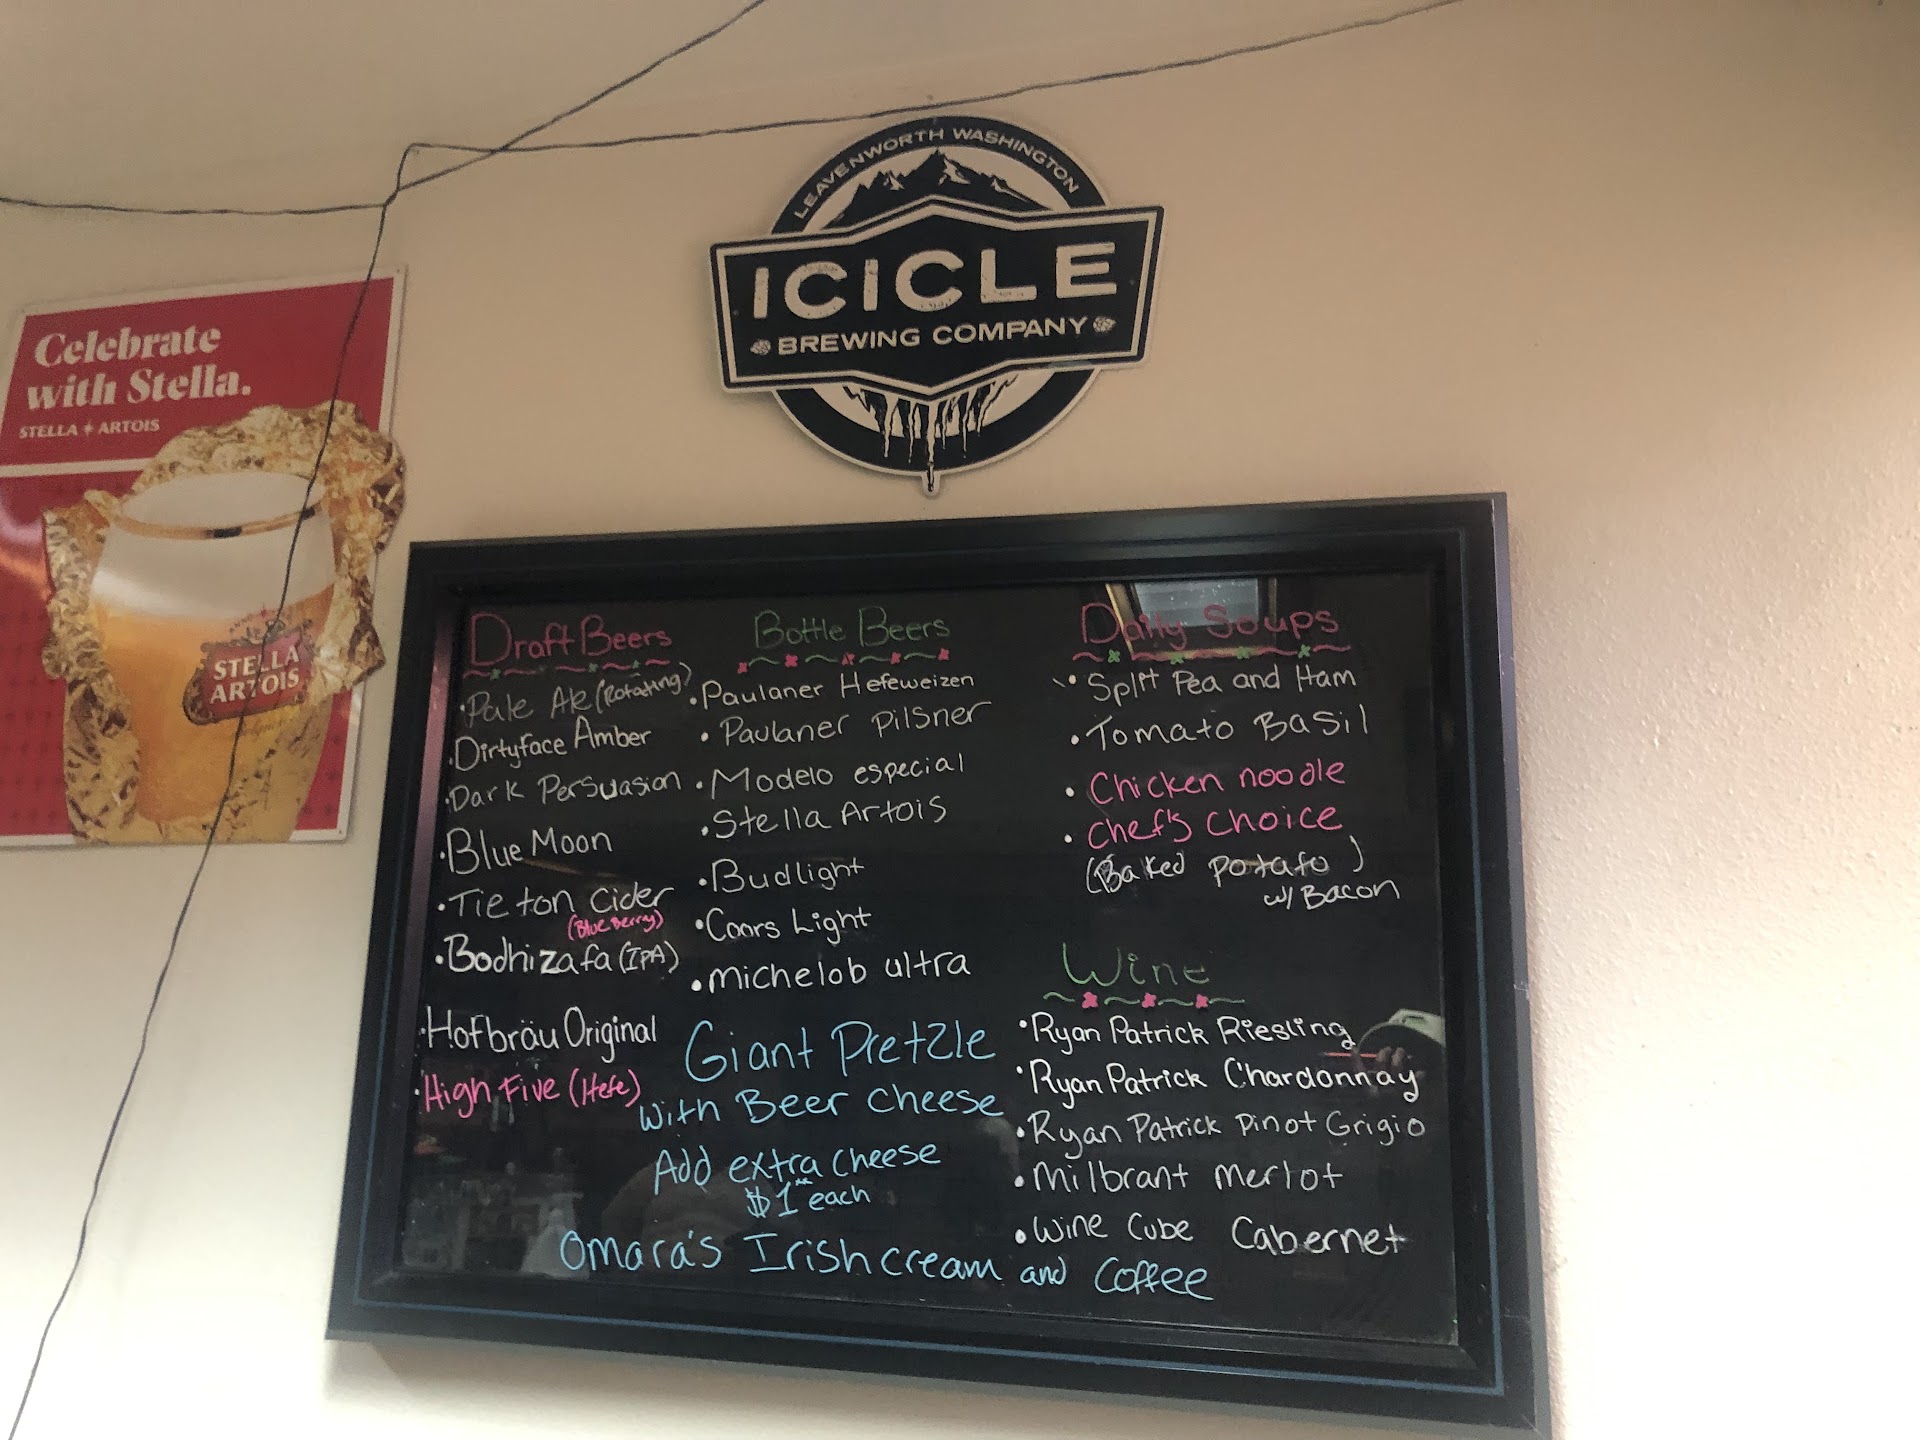 LEAVENWORTH WASHINGTON
ICICLE
BREWING COMPANY
Celebrate
with Stella.
STELLA ARTOIS
STELLA
ARTOIS
Draft Beers
Pale Ale (Rotating)
Dirtyface Amber
Dark Persuasion
Blue Moon
Tieton Cider
(Blue Berry)
Bodhizafa (IPA)
Hofbräu Original
High Five (Hefe)
Bottle Beers
Paulaner Hefeweizen
Paulaner Pilsner
Modelo especial
Stella Artois
Budlight
Coors Light
michelob ultra
Giant Pretzle
with Beer cheese
Add extra cheese
$1 each
Daily Soups
Split Pea and Ham
Tomato Basil
Chicken noodle
Chef's Choice
(Baked potato)
w/ Bacon
Wine
Ryan Patrick Riesling
Ryan Patrick Chardonnay
Ryan Patrick Pinot Grigio
Milbrant merlot
Wine Cube Cabernet
Omara's Irish cream and Coffee